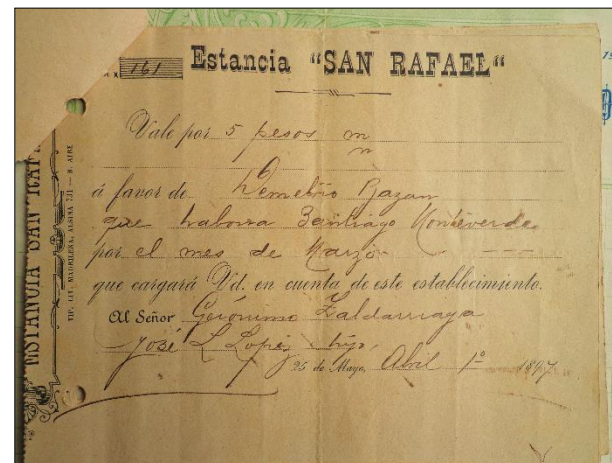 161
Estancia "SAN RAFAEL"
Vale por 5 pesos m/n
á favor de Demetrio Bazan
que Santiago Monteverde
por el mes de Marzo
que cargará Vd. en cuenta de este establecimiento.
Al Señor Gerónimo Zaldarriaga
José L Lopez hijo
25 de Mayo, Abril 1º 1897
ESTANCIA SAN RAF
TIP. LIT. MADRILEÑA, ALSINA 731 — B. AIRE